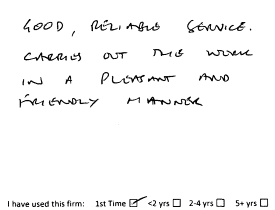 GOOD, RELIABLE SERVICE.
CARRIES OUT THE WORK
IN A PLEASANT AND
FRIENDLY MANNER
I have used this firm: 1st Time ☑ <2 yrs ☐ 2-4 yrs ☐ 5+ yrs ☐